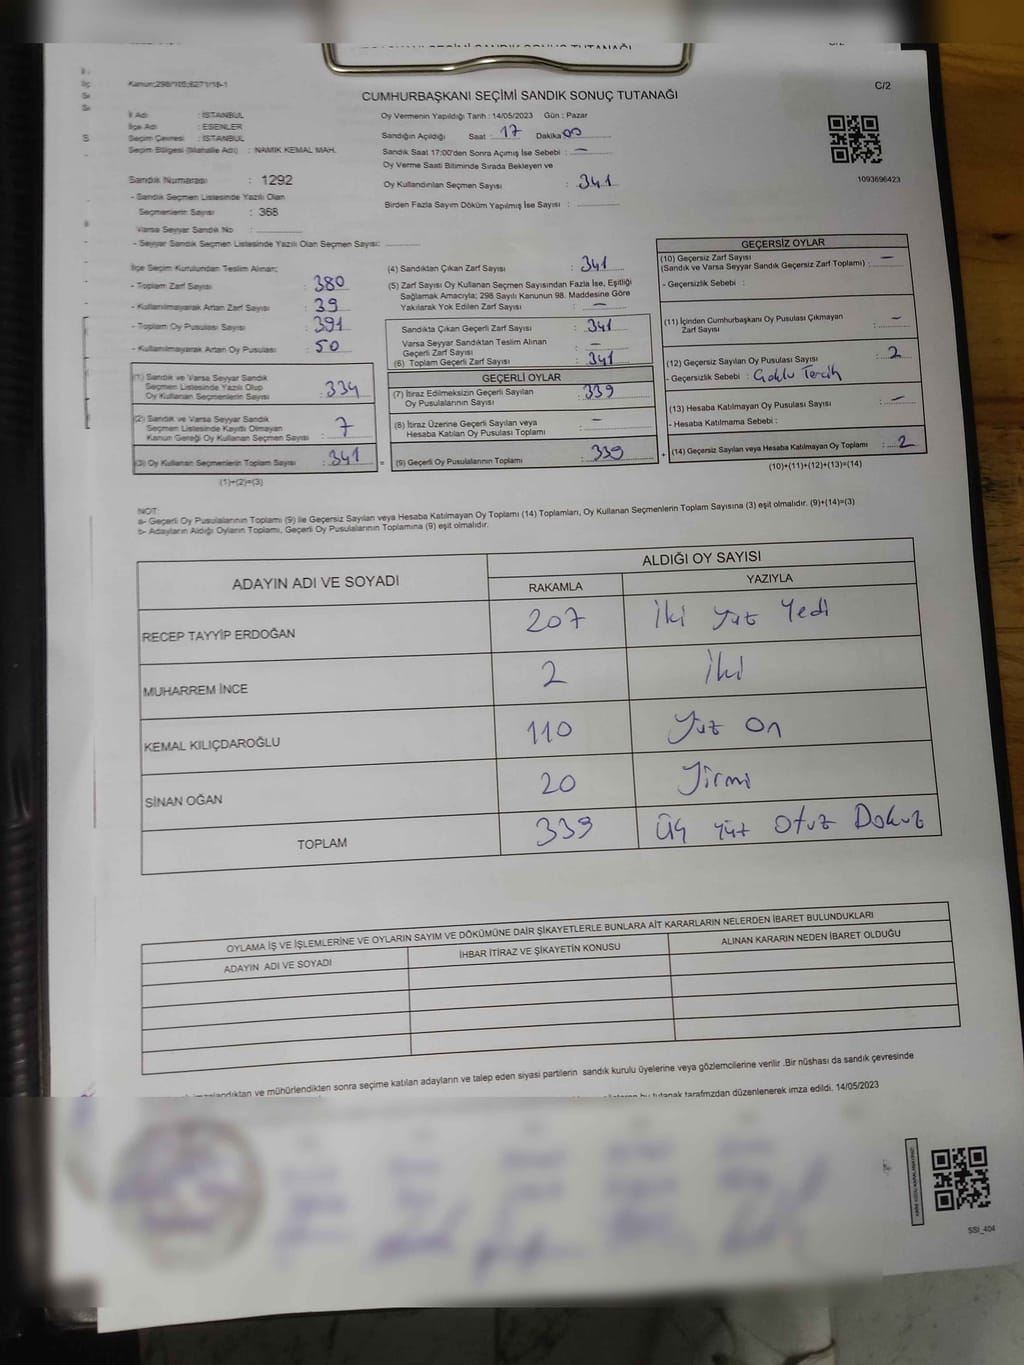 Kanun;298/105;6271/16-1
C/2
CUMHURBAŞKANI SEÇİMİ SANDIK SONUÇ TUTANAĞI
İl Adı : İSTANBUL
İlçe Adı : ESENLER
Seçim Çevresi : İSTANBUL
Seçim Bölgesi (Mahalle Adı) : NAMIK KEMAL MAH.
Oy Vermenin Yapıldığı Tarih : 14/05/2023 Gün : Pazar
Sandığın Açıldığı Saat : 17 Dakika 00
Sandık Saat 17:00'den Sonra Açımış İse Sebebi : —
Oy Verme Saati Bitiminde Sırada Bekleyen ve
Oy Kullandırılan Seçmen Sayısı : 341
Birden Fazla Sayım Döküm Yapılmış İse Sayısı :
1093696423
Sandık Numarası : 1292
- Sandık Seçmen Listesinde Yazılı Olan
Seçmenlerin Sayısı : 368
Varsa Seyyar Sandık No :
- Seyyar Sandık Seçmen Listesinde Yazılı Olan Seçmen Sayısı:
İlçe Seçim Kurulundan Teslim Alınan;
- Toplam Zarf Sayısı : 380
- Kullanılmayarak Artan Zarf Sayısı : 39
- Toplam Oy Pusulası Sayısı : 391
- Kullanılmayarak Artan Oy Pusulası : 50
(1) Sandık ve Varsa Seyyar Sandık
Seçmen Listesinde Yazılı Olup
Oy Kullanan Seçmenlerin Sayısı : 334
(2) Sandık ve Varsa Seyyar Sandık
Seçmen Listesinde Kayıtlı Olmayan
Kanun Gereği Oy Kullanan Seçmen Sayısı : 7
(3) Oy Kullanan Seçmenlerin Toplam Sayısı : 341
(1)+(2)=(3)
(4) Sandıktan Çıkan Zarf Sayısı : 341
(5) Zarf Sayısı Oy Kullanan Seçmen Sayısından Fazla İse, Eşitliği
Sağlamak Amacıyla; 298 Sayılı Kanunun 98. Maddesine Göre
Yakılarak Yok Edilen Zarf Sayısı : —
Sandıkta Çıkan Geçerli Zarf Sayısı : 341
Varsa Seyyar Sandıktan Teslim Alınan
Geçerli Zarf Sayısı : —
(6) Toplam Geçerli Zarf Sayısı : 341
GEÇERLİ OYLAR
(7) İtiraz Edilmeksizin Geçerli Sayılan
Oy Pusulalarının Sayısı : 339
(8) İtiraz Üzerine Geçerli Sayılan veya
Hesaba Katılan Oy Pusulası Toplamı : —
= (9) Geçerli Oy Pusulalarının Toplamı : 339
GEÇERSİZ OYLAR
(10) Geçersiz Zarf Sayısı
(Sandık ve Varsa Seyyar Sandık Geçersiz Zarf Toplamı) : —
- Geçersizlik Sebebi :
(11) İçinden Cumhurbaşkanı Oy Pusulası Çıkmayan
Zarf Sayısı : —
(12) Geçersiz Sayılan Oy Pusulası Sayısı : 2
- Geçersizlik Sebebi : Çoklu Tercih
(13) Hesaba Katılmayan Oy Pusulası Sayısı : —
- Hesaba Katılmama Sebebi :
+ (14) Geçersiz Sayılan veya Hesaba Katılmayan Oy Toplamı : 2
(10)+(11)+(12)+(13)=(14)
NOT:
a- Geçerli Oy Pusulalarının Toplamı (9) ile Geçersiz Sayılan veya Hesaba Katılmayan Oy Toplamı (14) Toplamları, Oy Kullanan Seçmenlerin Toplam Sayısına (3) eşit olmalıdır. (9)+(14)=(3)
b- Adayların Aldığı Oyların Toplamı, Geçerli Oy Pusulalarının Toplamına (9) eşit olmalıdır.
ADAYIN ADI VE SOYADI
ALDIĞI OY SAYISI
RAKAMLA YAZIYLA
RECEP TAYYİP ERDOĞAN 207 İki yüz Yedi
MUHARREM İNCE 2 İki
KEMAL KILIÇDAROĞLU 110 Yüz On
SİNAN OĞAN 20 Yirmi
TOPLAM 339 Üç yüz Otuz Dokuz
OYLAMA İŞ VE İŞLEMLERİNE VE OYLARIN SAYIM VE DÖKÜMÜNE DAİR ŞİKAYETLERLE BUNLARA AİT KARARLARIN NELERDEN İBARET BULUNDUKLARI
ADAYIN ADI VE SOYADI İHBAR İTİRAZ VE ŞİKAYETİN KONUSU ALINAN KARARIN NEDEN İBARET OLDUĞU
ve mühürlendikten sonra seçime katılan adayların ve talep eden siyasi partilerin sandık kurulu üyelerine veya gözlemcilerine verilir .Bir nüshası da sandık çevresinde
bu tutanak tarafımızdan düzenlenerek imza edildi. 14/05/2023
SSI_404